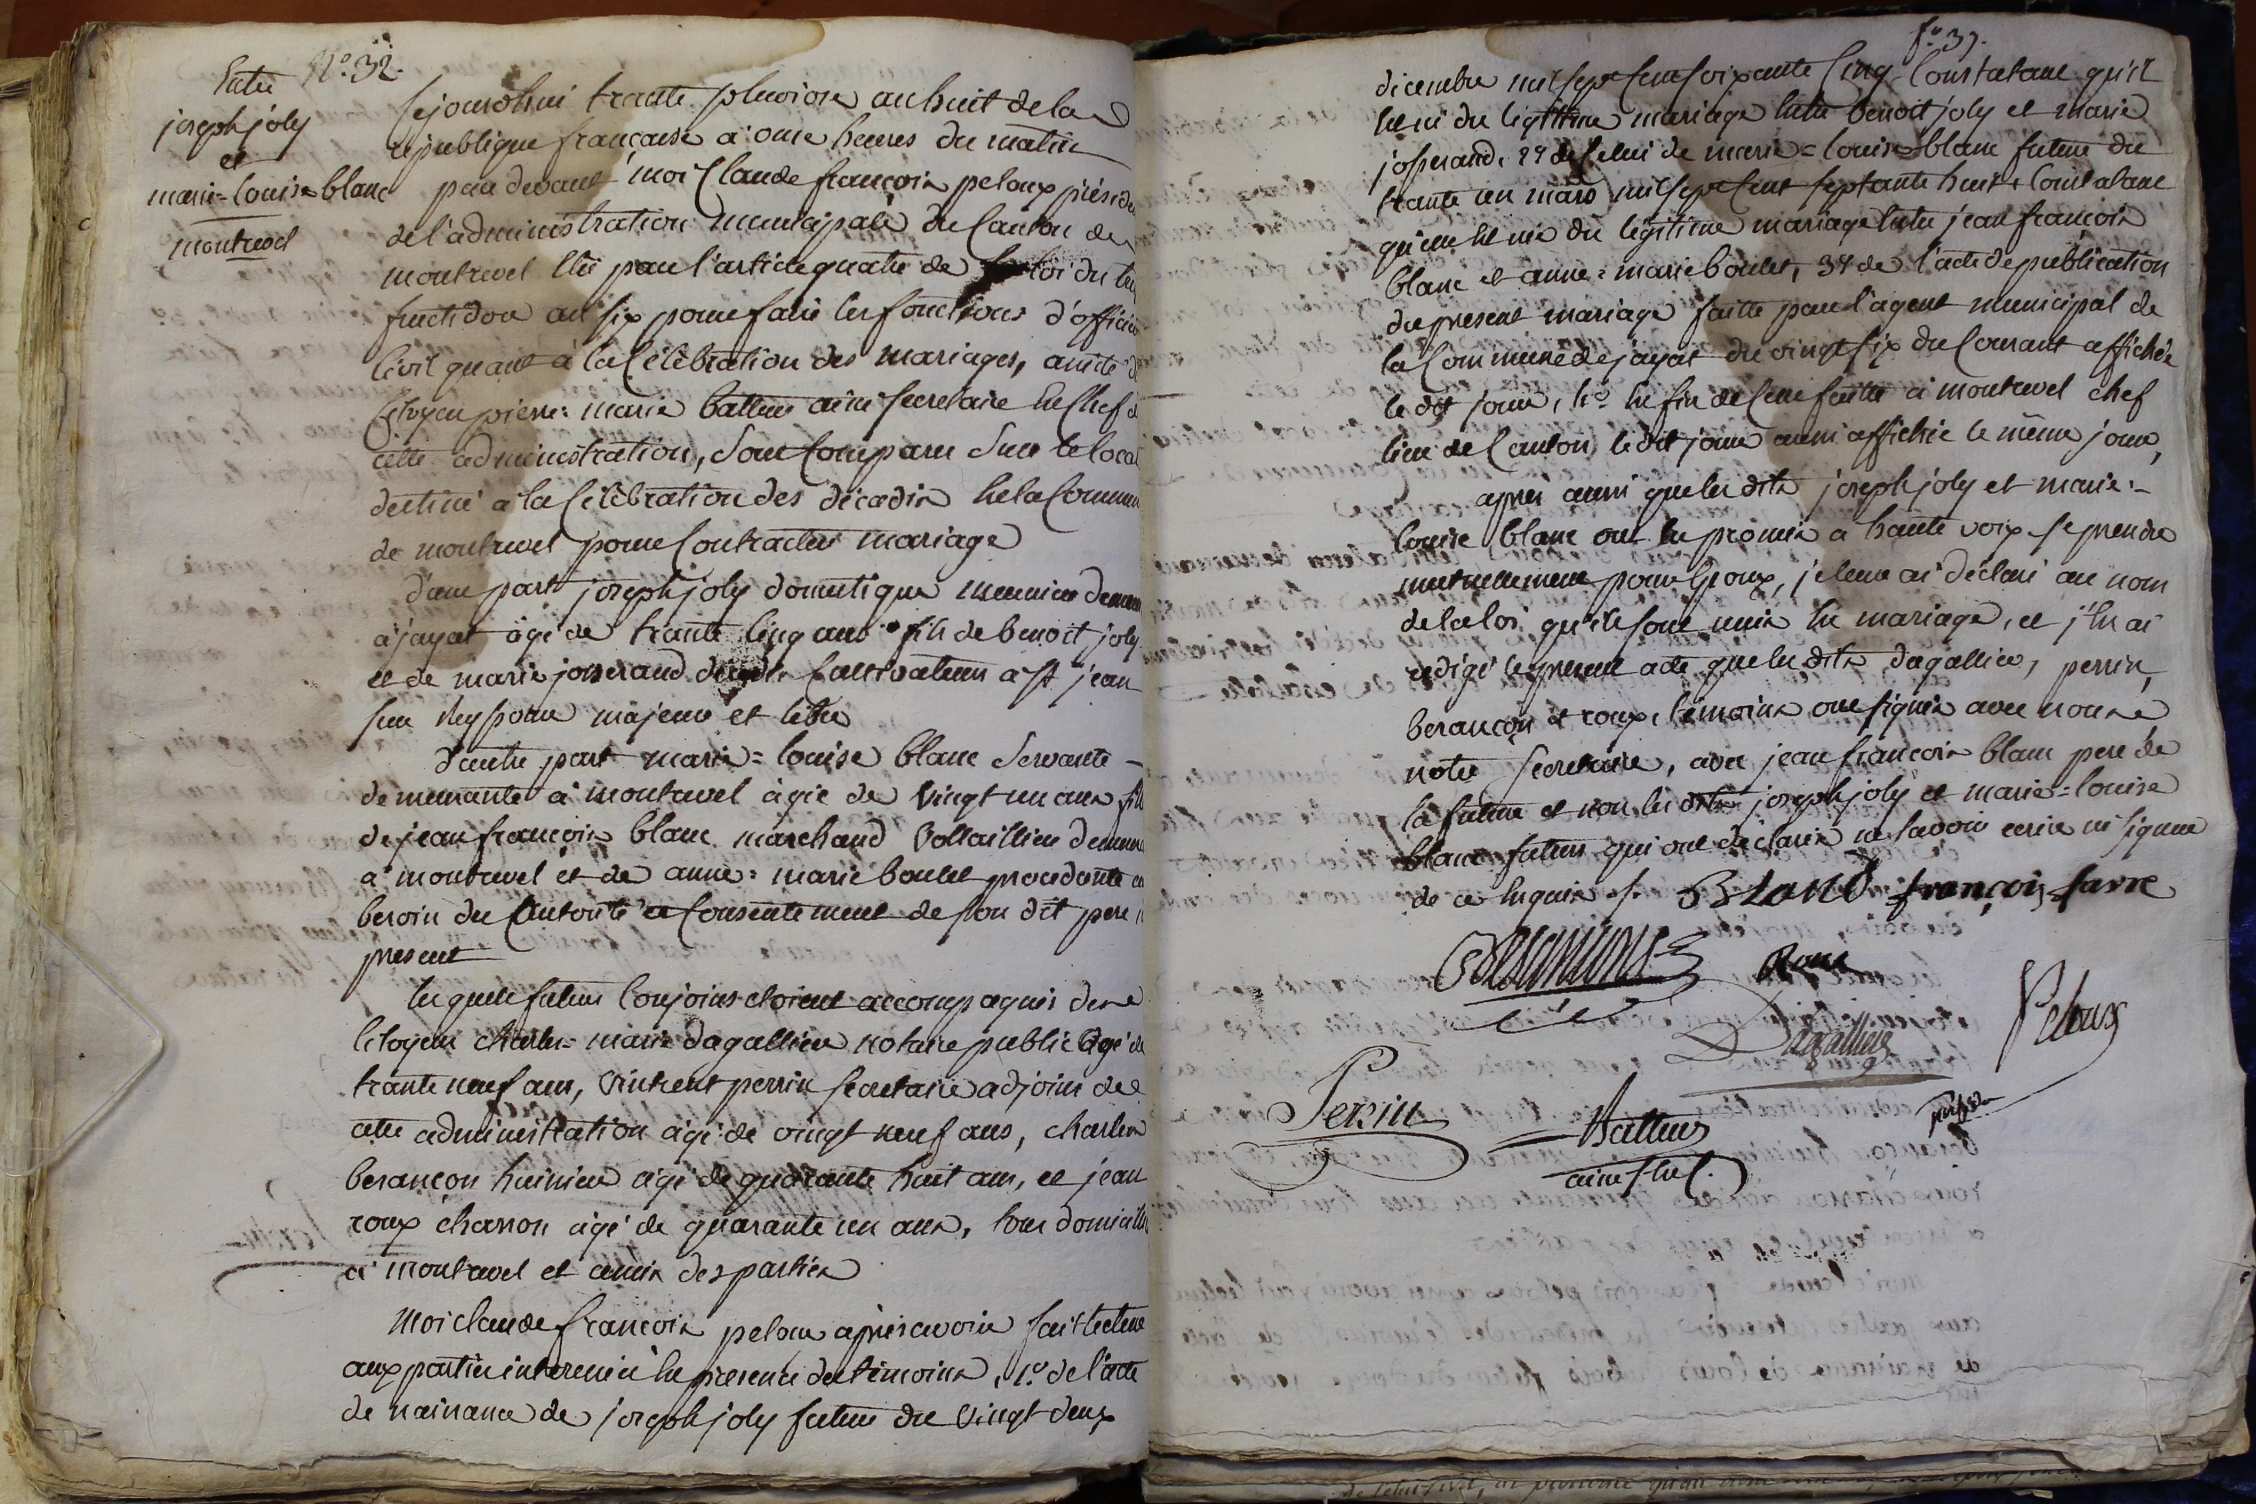 Entre N.° 32.
joseph joly
et
marie=louise blanc
montrevel
Cejourdhui trante pluviose an huit de la
republique française à onze heures du matin
par devant moi Claude françois peloux préside
de l'administration municipale du Canton de
montrevel Elu par l'article quatre de la loi du
fructidor an six pour faire les fonctions d'officier
Civil quant à la Célébration des mariages, assisté d
Citoyen pierre=marie battus ainé secretaire en chef d
cette administration, sont Comparu sur le local
destiné à la Célébration des décadis en la Commun
de montrevel pour Contracter mariage
d'une part joseph joly domestique meunier demeu
à jayat âgé de trante cinq ans fils de benoit joly
et de marie josserand Cultivateurs à st jean
sur Reyssouze majeur et libre
d'autre part marie=louise blanc servante
demeurante à montrevel âgée de vingt un ans fill
de jean françois blanc marchand vollaillier demeur
à montrevel et de anne=marie boulet procedante au
besoin du L'autorité et Consentement de son dit pere
present
lesquels futurs Conjoins etoient accompagnés des
Citoyens charles=marie dagallier notaire public âgé de
trante neuf ans, vincent perrin secretaire adjoint de
cette administration âgé de vingt neuf ans, charles
besançon huissier âgé de quarante huit ans, et jean
roux charron âgé de quarante un ans, tous domicilliés
à montrevel et amis des parties
Moi claude françois peloux après avoir fait lecture
aux parties interessées en presence des témoins, 1.° de l'acte
de naissance de joseph joly futur du vingt deux
f.° 37.
dicembre mil sept Cent soixante Cinq Constatant qu'il
est né du légitime mariage entre benoit joly et marie
josserand, 2.° de Celui de marie=louise blanc future du
trante un mars mil sept Cent septante huit, Constatant
qu'elle est née du légitime mariage entre jean françois
blanc et anne=marie boulet, 3.° de l'acte de publication
du present mariage faitte par l'agent municipal de
la Commune de jayat du vingt six du Courant affichée
le dit jour, 4.° enfin de Celle faitte à montrevel chef
lieu de Canton le dit jour aussi affichée le même jour,
après aussi que les dits joseph joly et marie=
louise blanc ont eu promis à haute voix se prendre
mutuellement pour Epoux, je leur ai déclaré au nom
de la loi qu'ils sont unis en mariage, et j'en ai
rédigé le present acte que les dits dagallier, perrin,
besançon et roux, témoins ont signés avec nous et
notre secretaire, avec jean françois blanc pere de
la future et non les dits joseph joly et marie=louise
blanc futurs qui ont déclarés ne savoir ecrire ni signer
de ce Enquis /. BLanC françois favre
Besançons Roux
Dagallier Peloux
Perrin Battus président
ainé